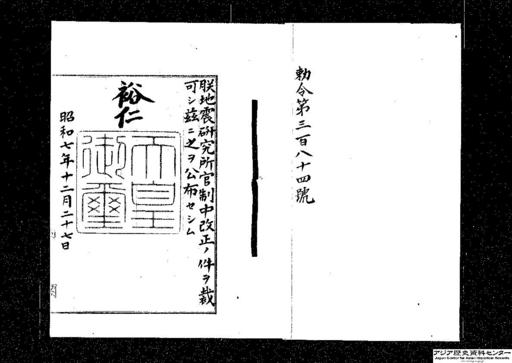 勅令第三百八十四號
朕地震研究所官制中改正ノ件ヲ裁
可シ茲ニ之ヲ公布セシム
裕仁
天皇
御璽
昭和七年十二月二十七日
アジア歴史資料センター
Japan Center for Asian Historical Records